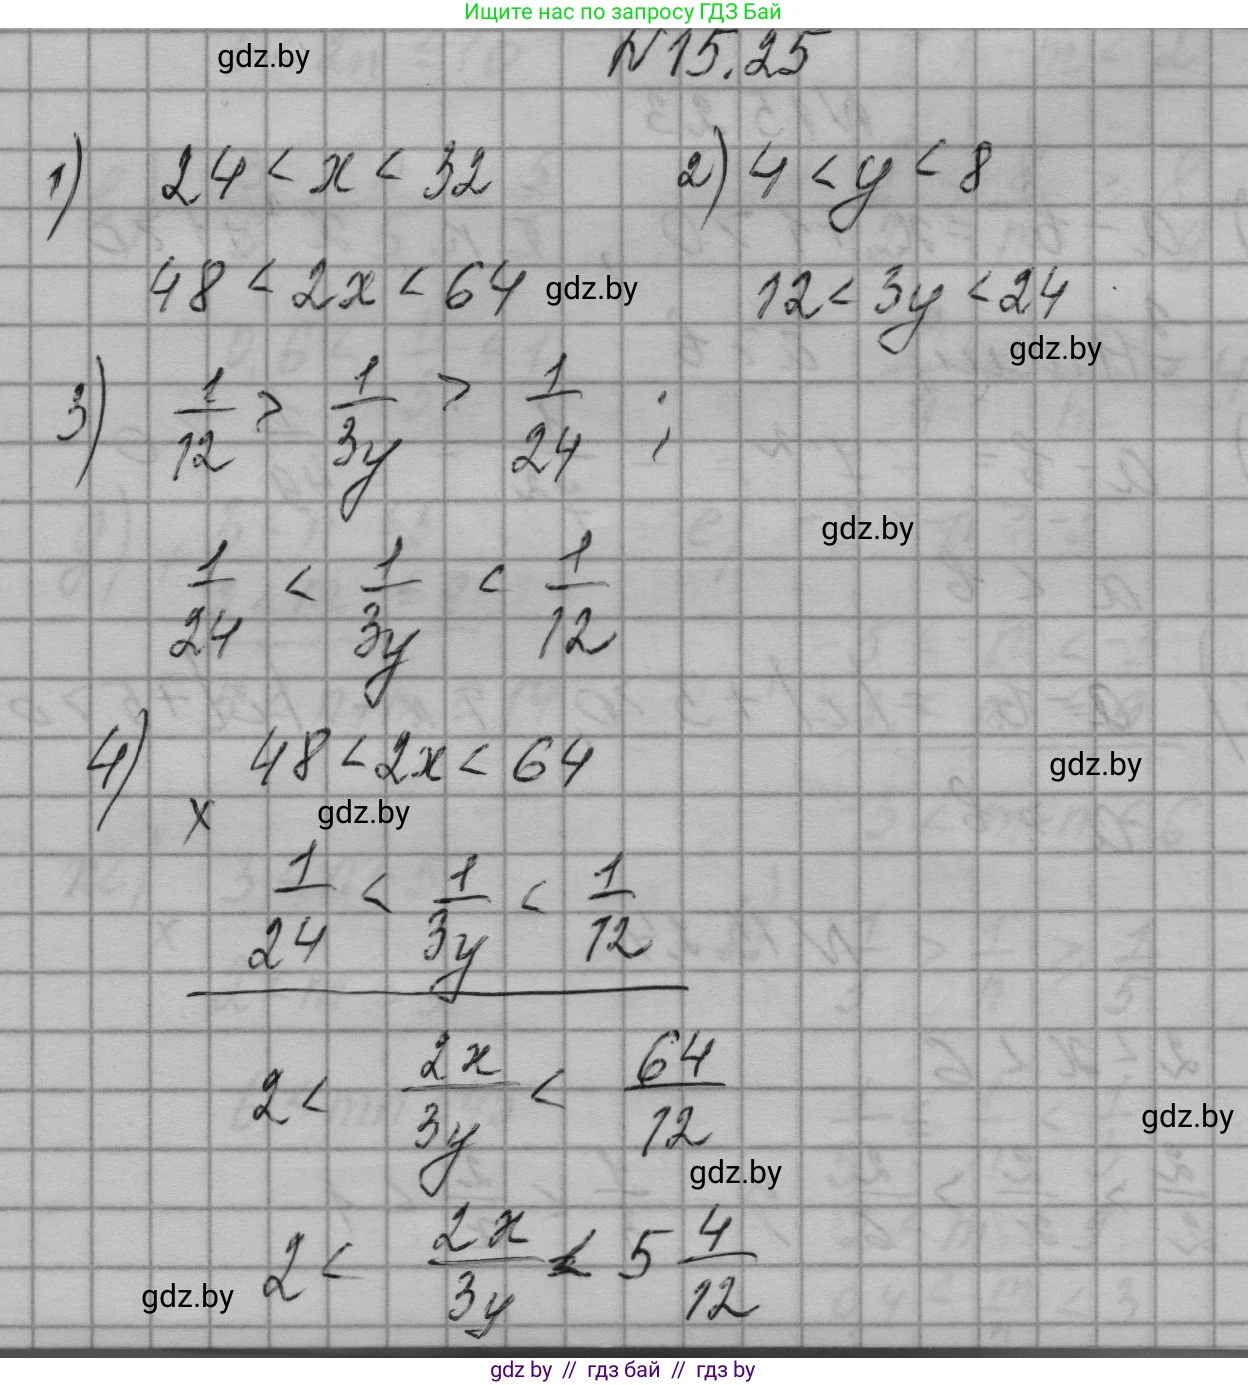 Ищите нас по запросу ГДЗ Бай
gdz.by
N 15.25
1) 24 < x < 32 2) 4 < y < 8
48 < 2x < 64 gdz.by 12 < 3y < 24
gdz.by
3) 1/12 > 1/3y > 1/24 ;
gdz.by
1/24 < 1/3y < 1/12
4) 48 < 2x < 64
gdz.by
x gdz.by
1/24 < 1/3y < 1/12
2 < 2x/3y < 64/12
gdz.by
gdz.by
2 < 2x/3y < 5 4/12
gdz.by
gdz by // гдз бай // гдз by